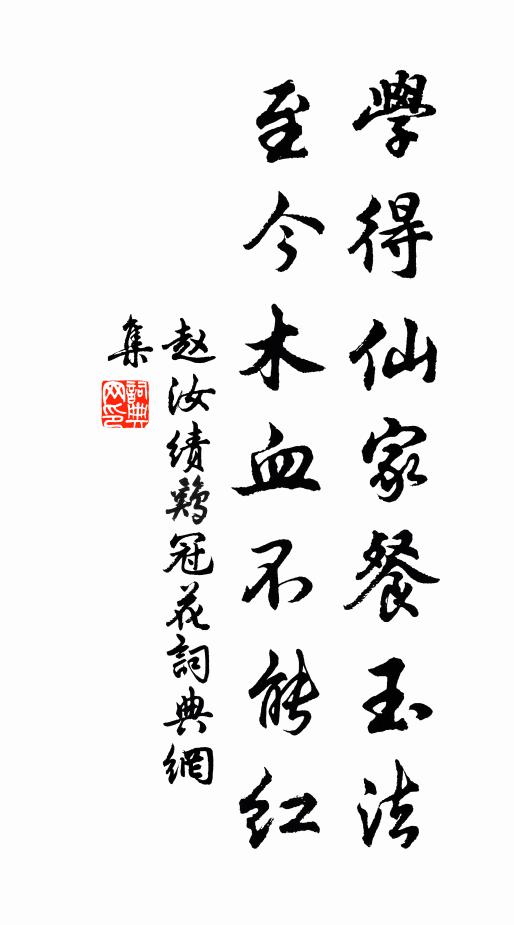 學得仙家餐玉法
至今木血不能红
赵汝绩鷄冠花詞典網
集
詞典網印